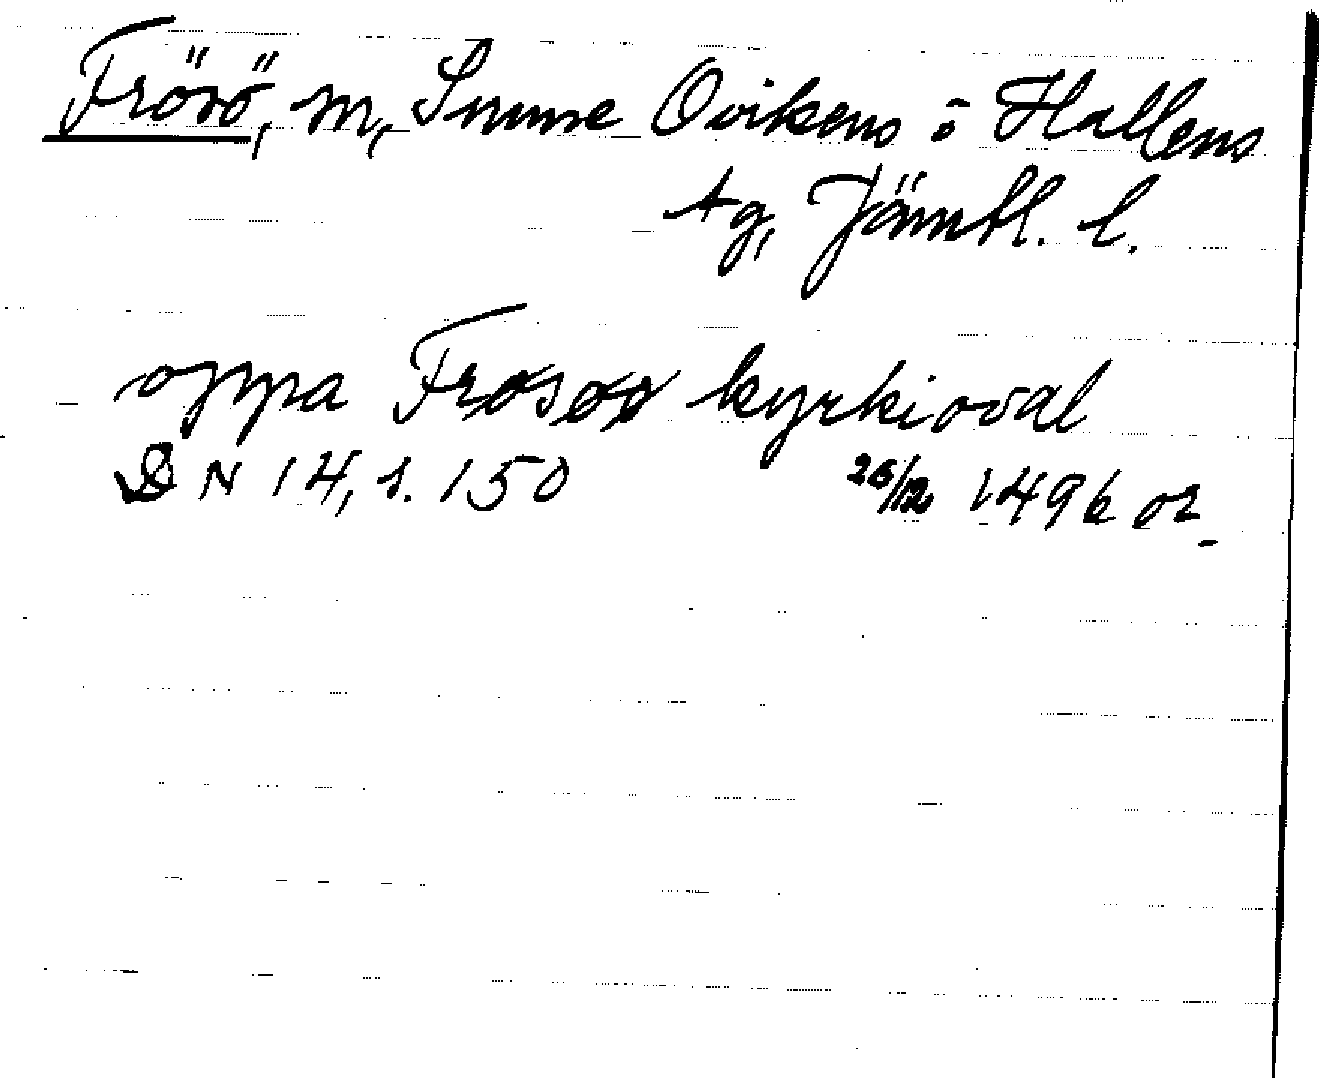 Frösö, sn, Sunne Ovikens o Hallens
tg, Jämtl. l.
oppa Frøsøø kyrkioval
DN 14, s. 150 26/12 1496 or.